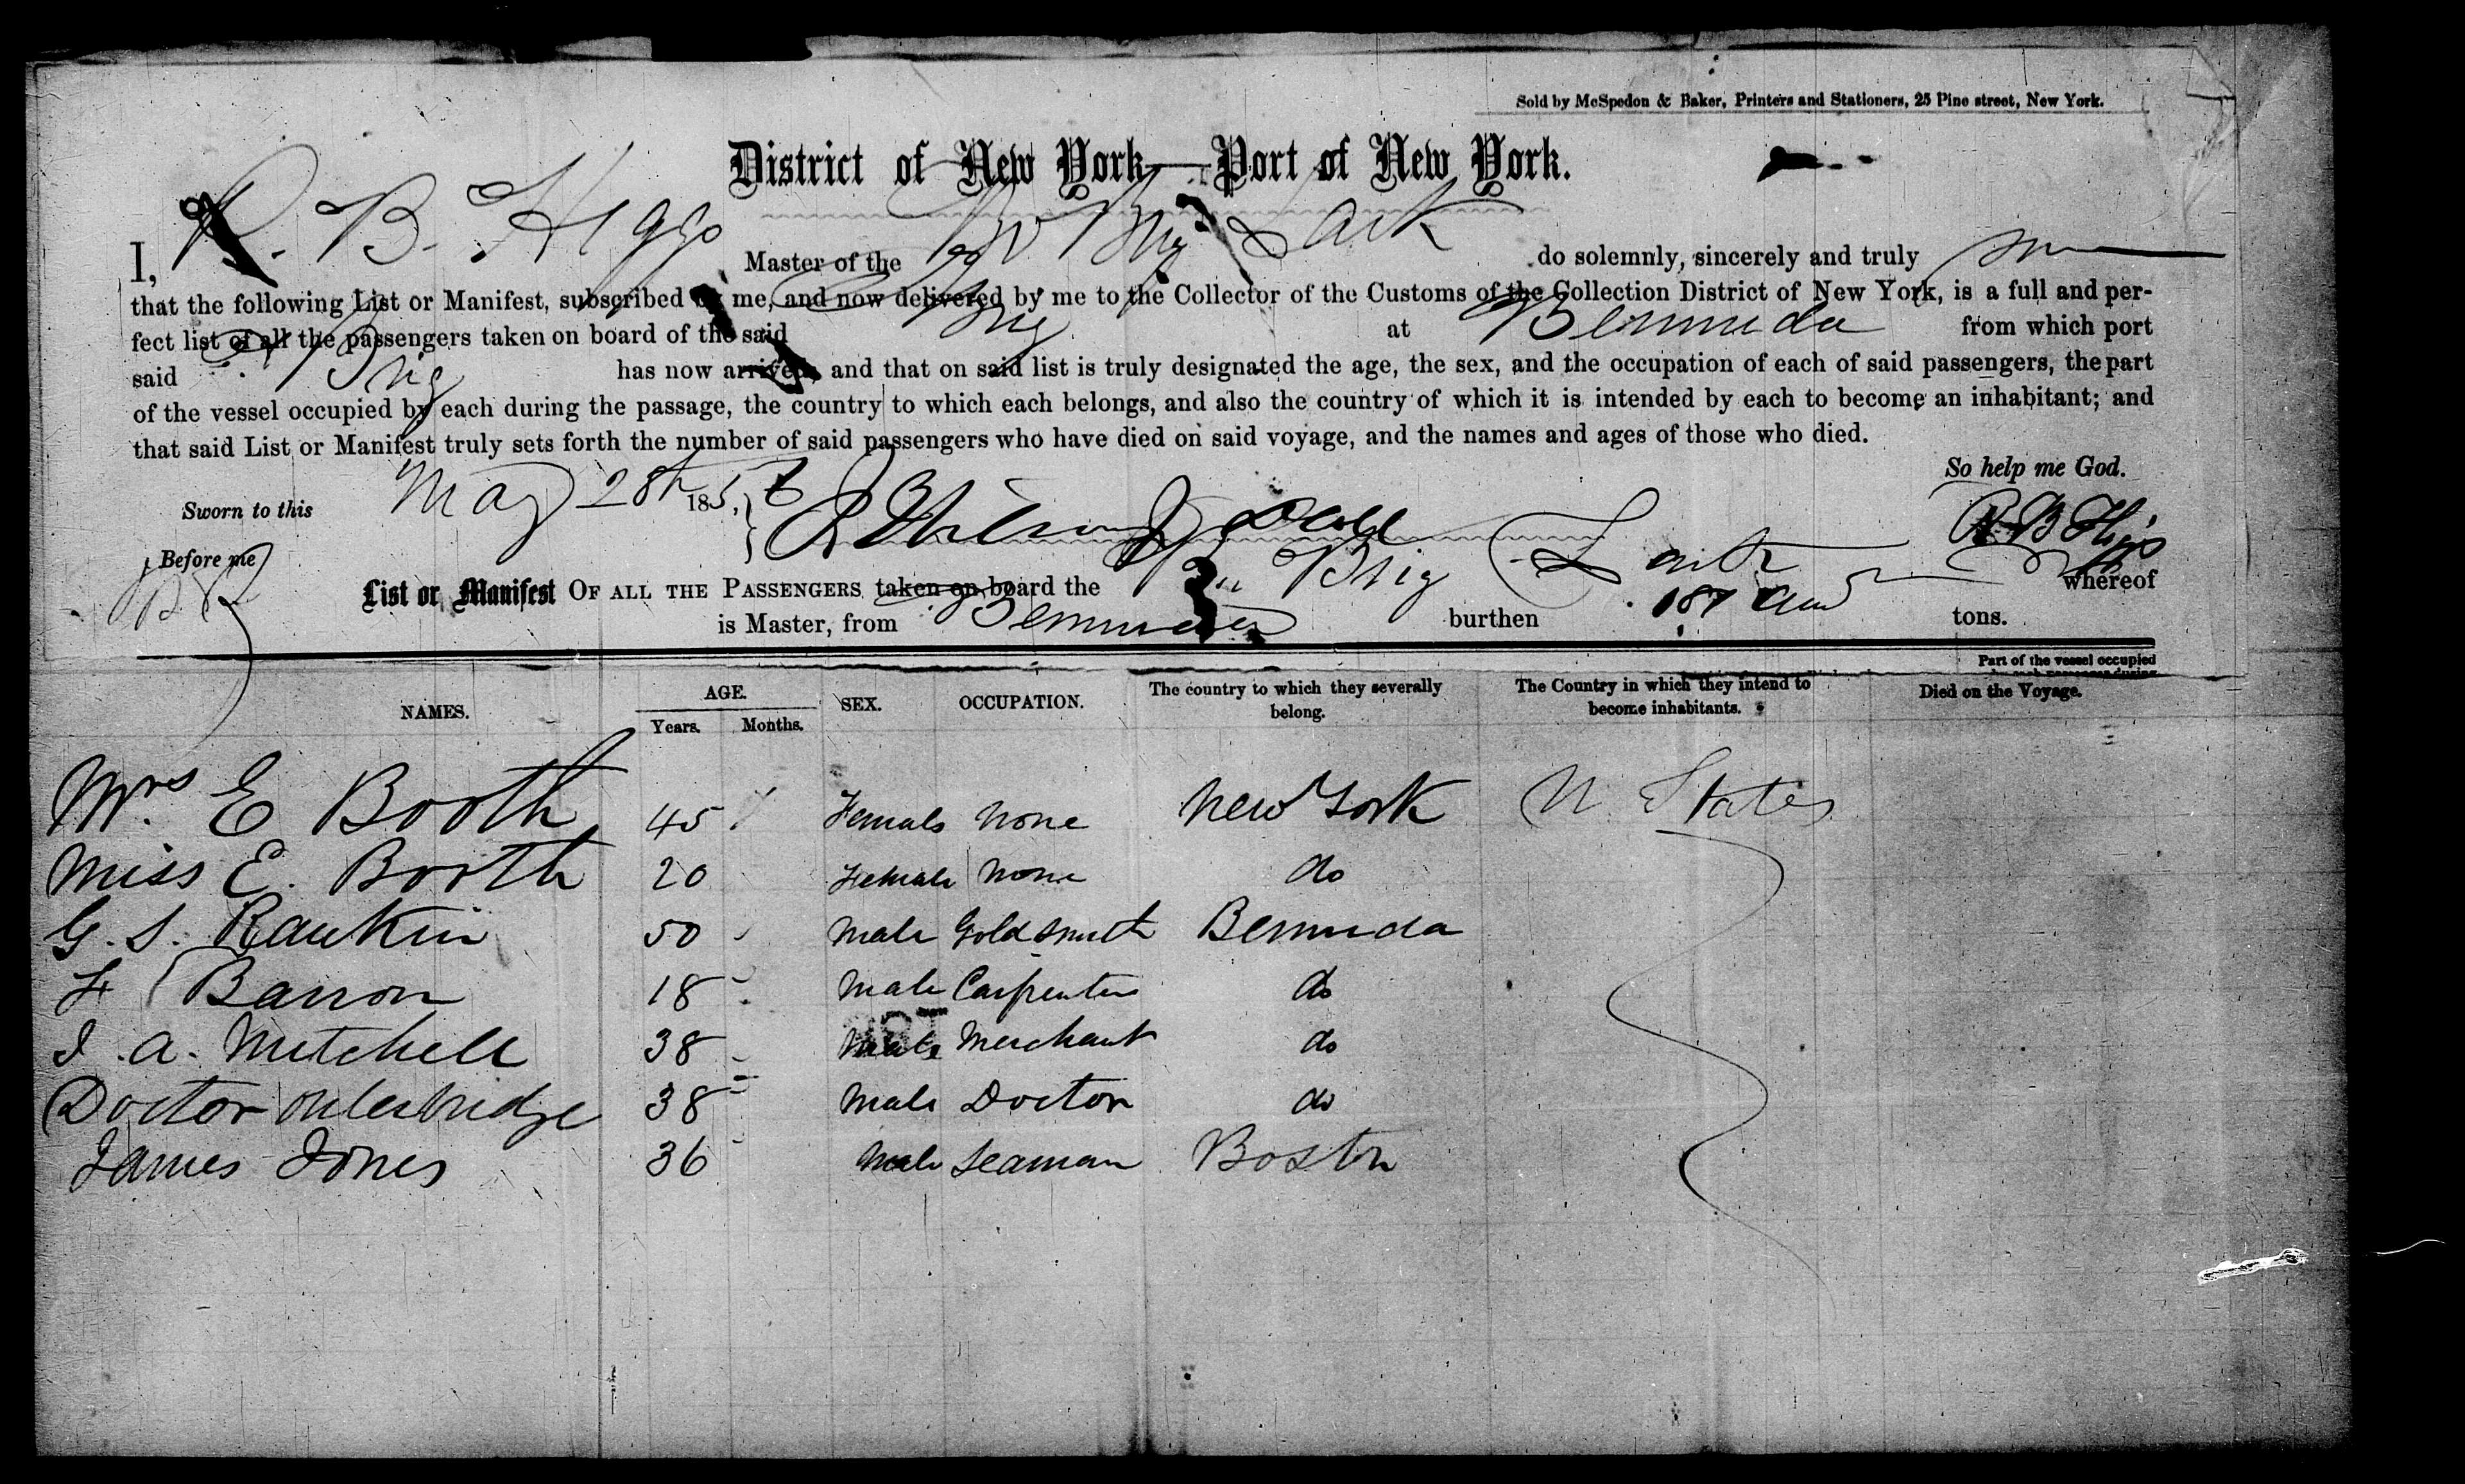 Sold by McSpedon & Baker, Printers and Stationers, 25 Pine street, New York.
District of New York—Port of New York.
I, R. B. Higgs Master of the Brig Lark do solemnly, sincerely and truly
that the following List or Manifest, subscribed by me, and now delivered by me to the Collector of the Customs of the Collection District of New York, is a full and per-
fect list of all the passengers taken on board of the said Brig at Bermuda from which port
said Brig has now arrived, and that on said list is truly designated the age, the sex, and the occupation of each of said passengers, the part
of the vessel occupied by each during the passage, the country to which each belongs, and also the country of which it is intended by each to become an inhabitant; and
that said List or Manifest truly sets forth the number of said passengers who have died on said voyage, and the names and ages of those who died.
So help me God.
Sworn to this May 28th 1856
R B Higgs
Before me
List or Manifest OF ALL THE PASSENGERS taken on board the Brig Lark whereof
is Master, from Bermuda burthen 187 tons.
Part of the vessel occupied
NAMES. AGE. Years. Months. SEX. OCCUPATION. The country to which they severally belong. The Country in which they intend to become inhabitants. Died on the Voyage.
Mrs. E Booth 45 Female None New York U. States
Miss E. Booth 20 Female None do
G. S. Rankin 50 Male Goldsmith Bermuda
F Barron 18 Male Carpenter do
J. A. Mitchell 38 Male Merchant do
Doctor Outerbridge 38 Male Doctor do
James Jones 36 Male Seaman Boston